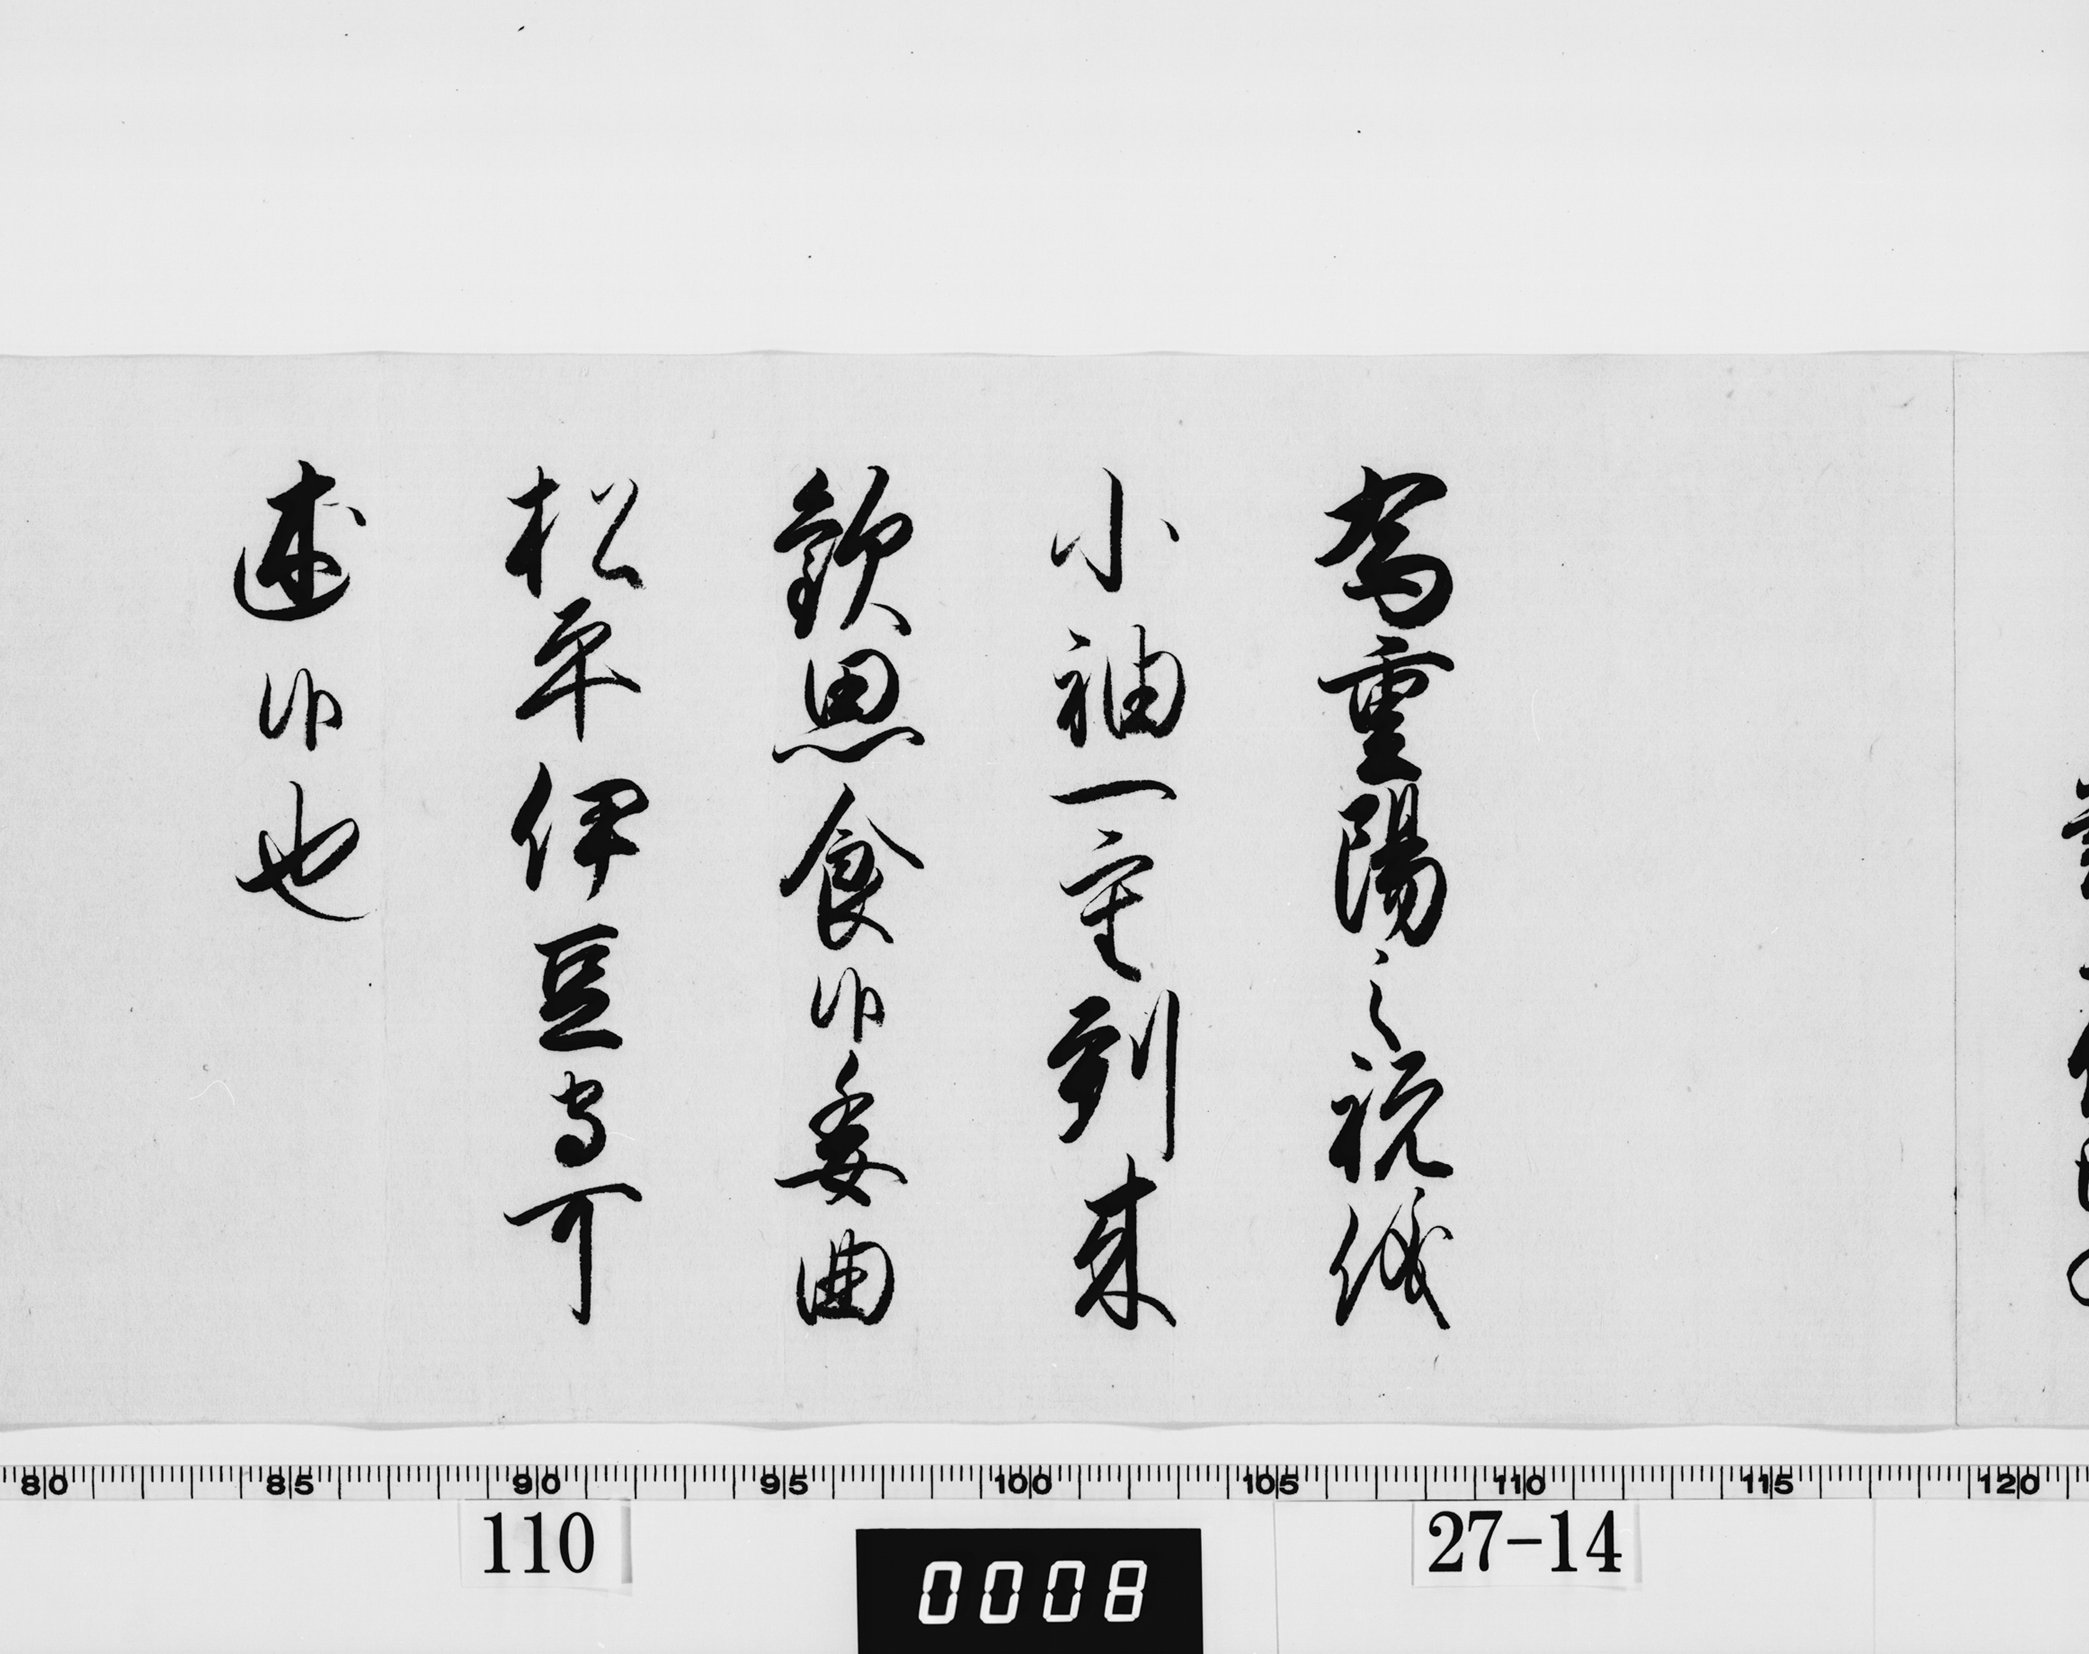 為重陽之祝儀
小袖一重到来
歓思食候委曲
松平伊豆守可
述候也
80 85 90 95 100 105 110 115 120
110
0008
27-14